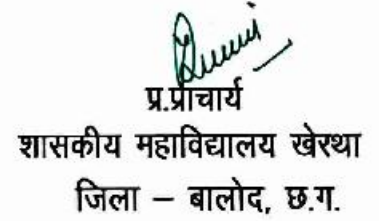 प्र.प्राचार्य
शासकीय महाविद्यालय खेरथा
जिला – बालोद, छ.ग.